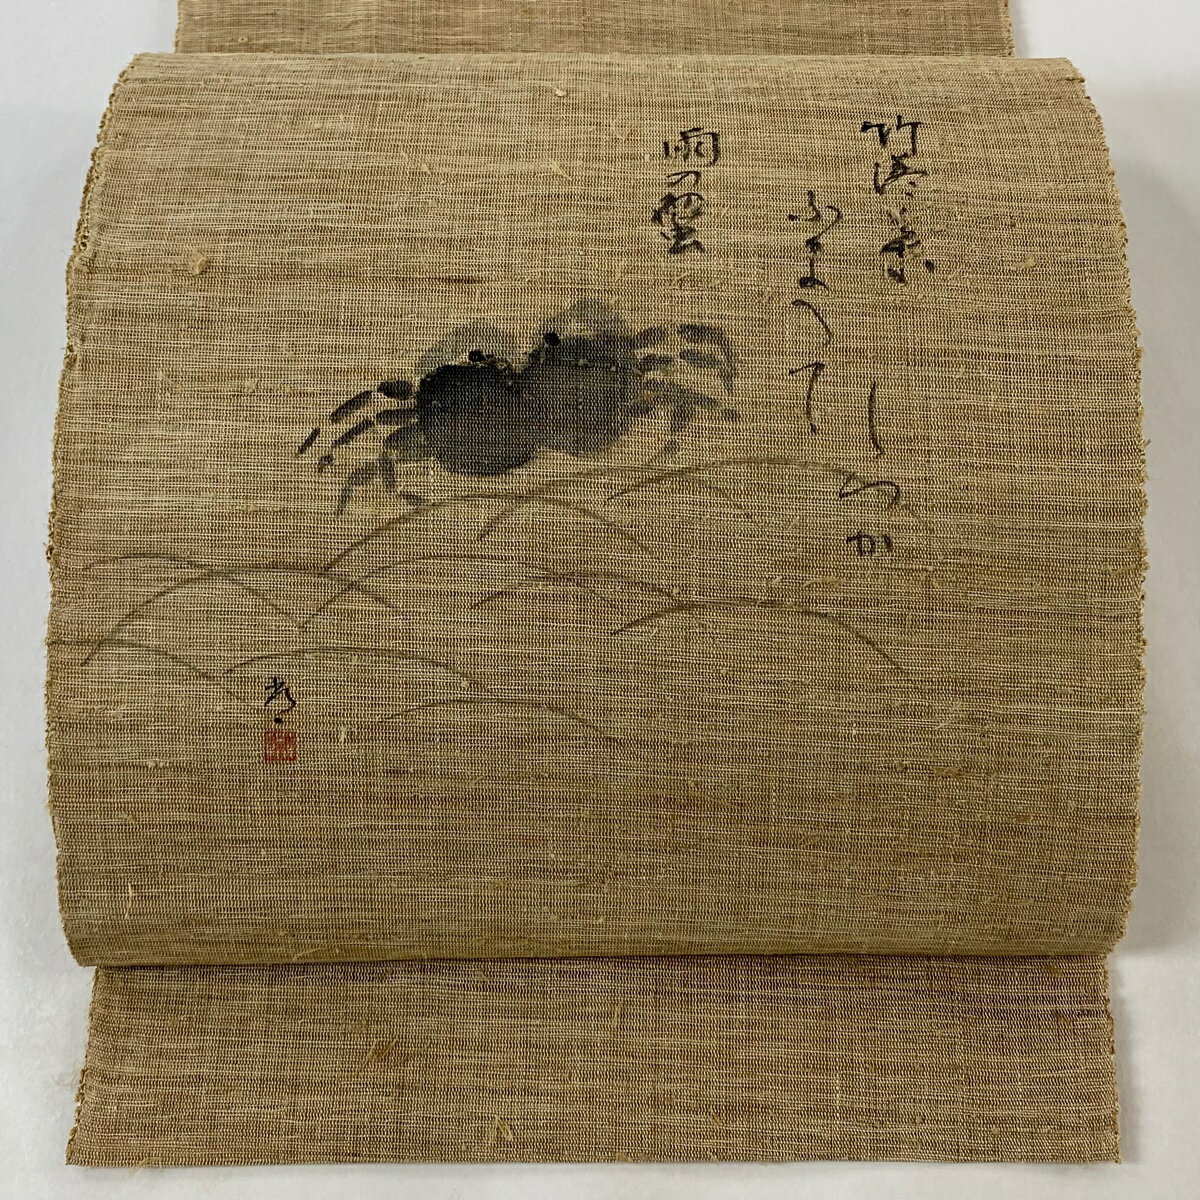 竹落葉しつか
ふまへて
雨の蟹